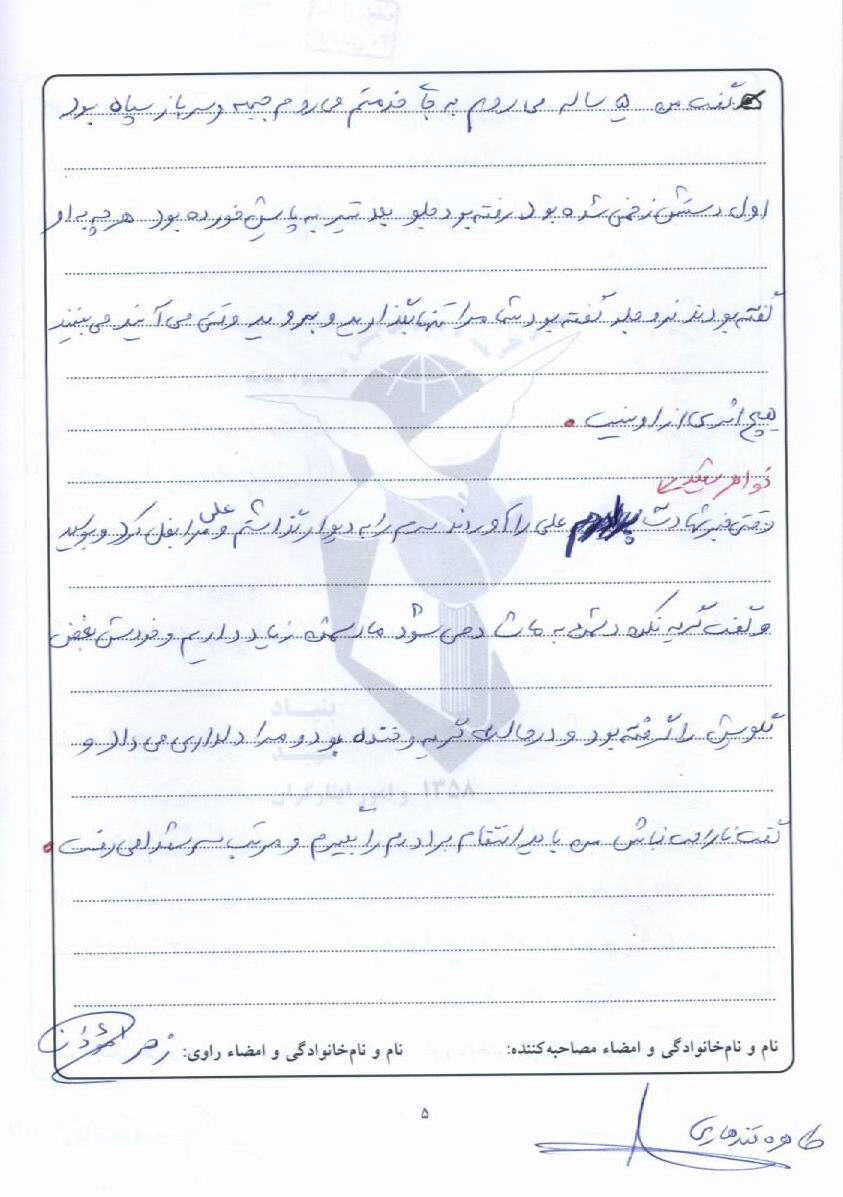 گفت من ۵ ساله می روم به جای خدمتم می روم جبهه و سرباز سپاه بود
اول دستش زخمی شده بود رفته بود جلو بعد تیر به پایش خورده بود هر چه به او
گفته بودند نرو جلو گفته بود شما مرا تنها بگذارید و بروید وقتی می آیند می بینند
هیچ اثری از او نیست.
خواهر شهید
وقتی خبر شهادت علی را آوردند سرم را به دیوار گذاشتم و علی مرا بغل کرد و بوسید
و گفت گریه نکن دشمن به ما شاد می شود ما دشمن زیاد داریم و خودش بغض
گلویش را گرفته بود و در حالت گریه و خنده بود و مرا دلداری می داد و
گفت ناراحت نباش من باید انتقام برادرم را بگیرم و مرتب سر شهدا می رفت.
بنیاد
شهید
و امور ایثارگران ۱۳۵۸
نام و نام‌خانوادگی و امضاء مصاحبه‌کننده: نام و نام‌خانوادگی و امضاء راوی: زهرا
۵
طاهره قندهاری